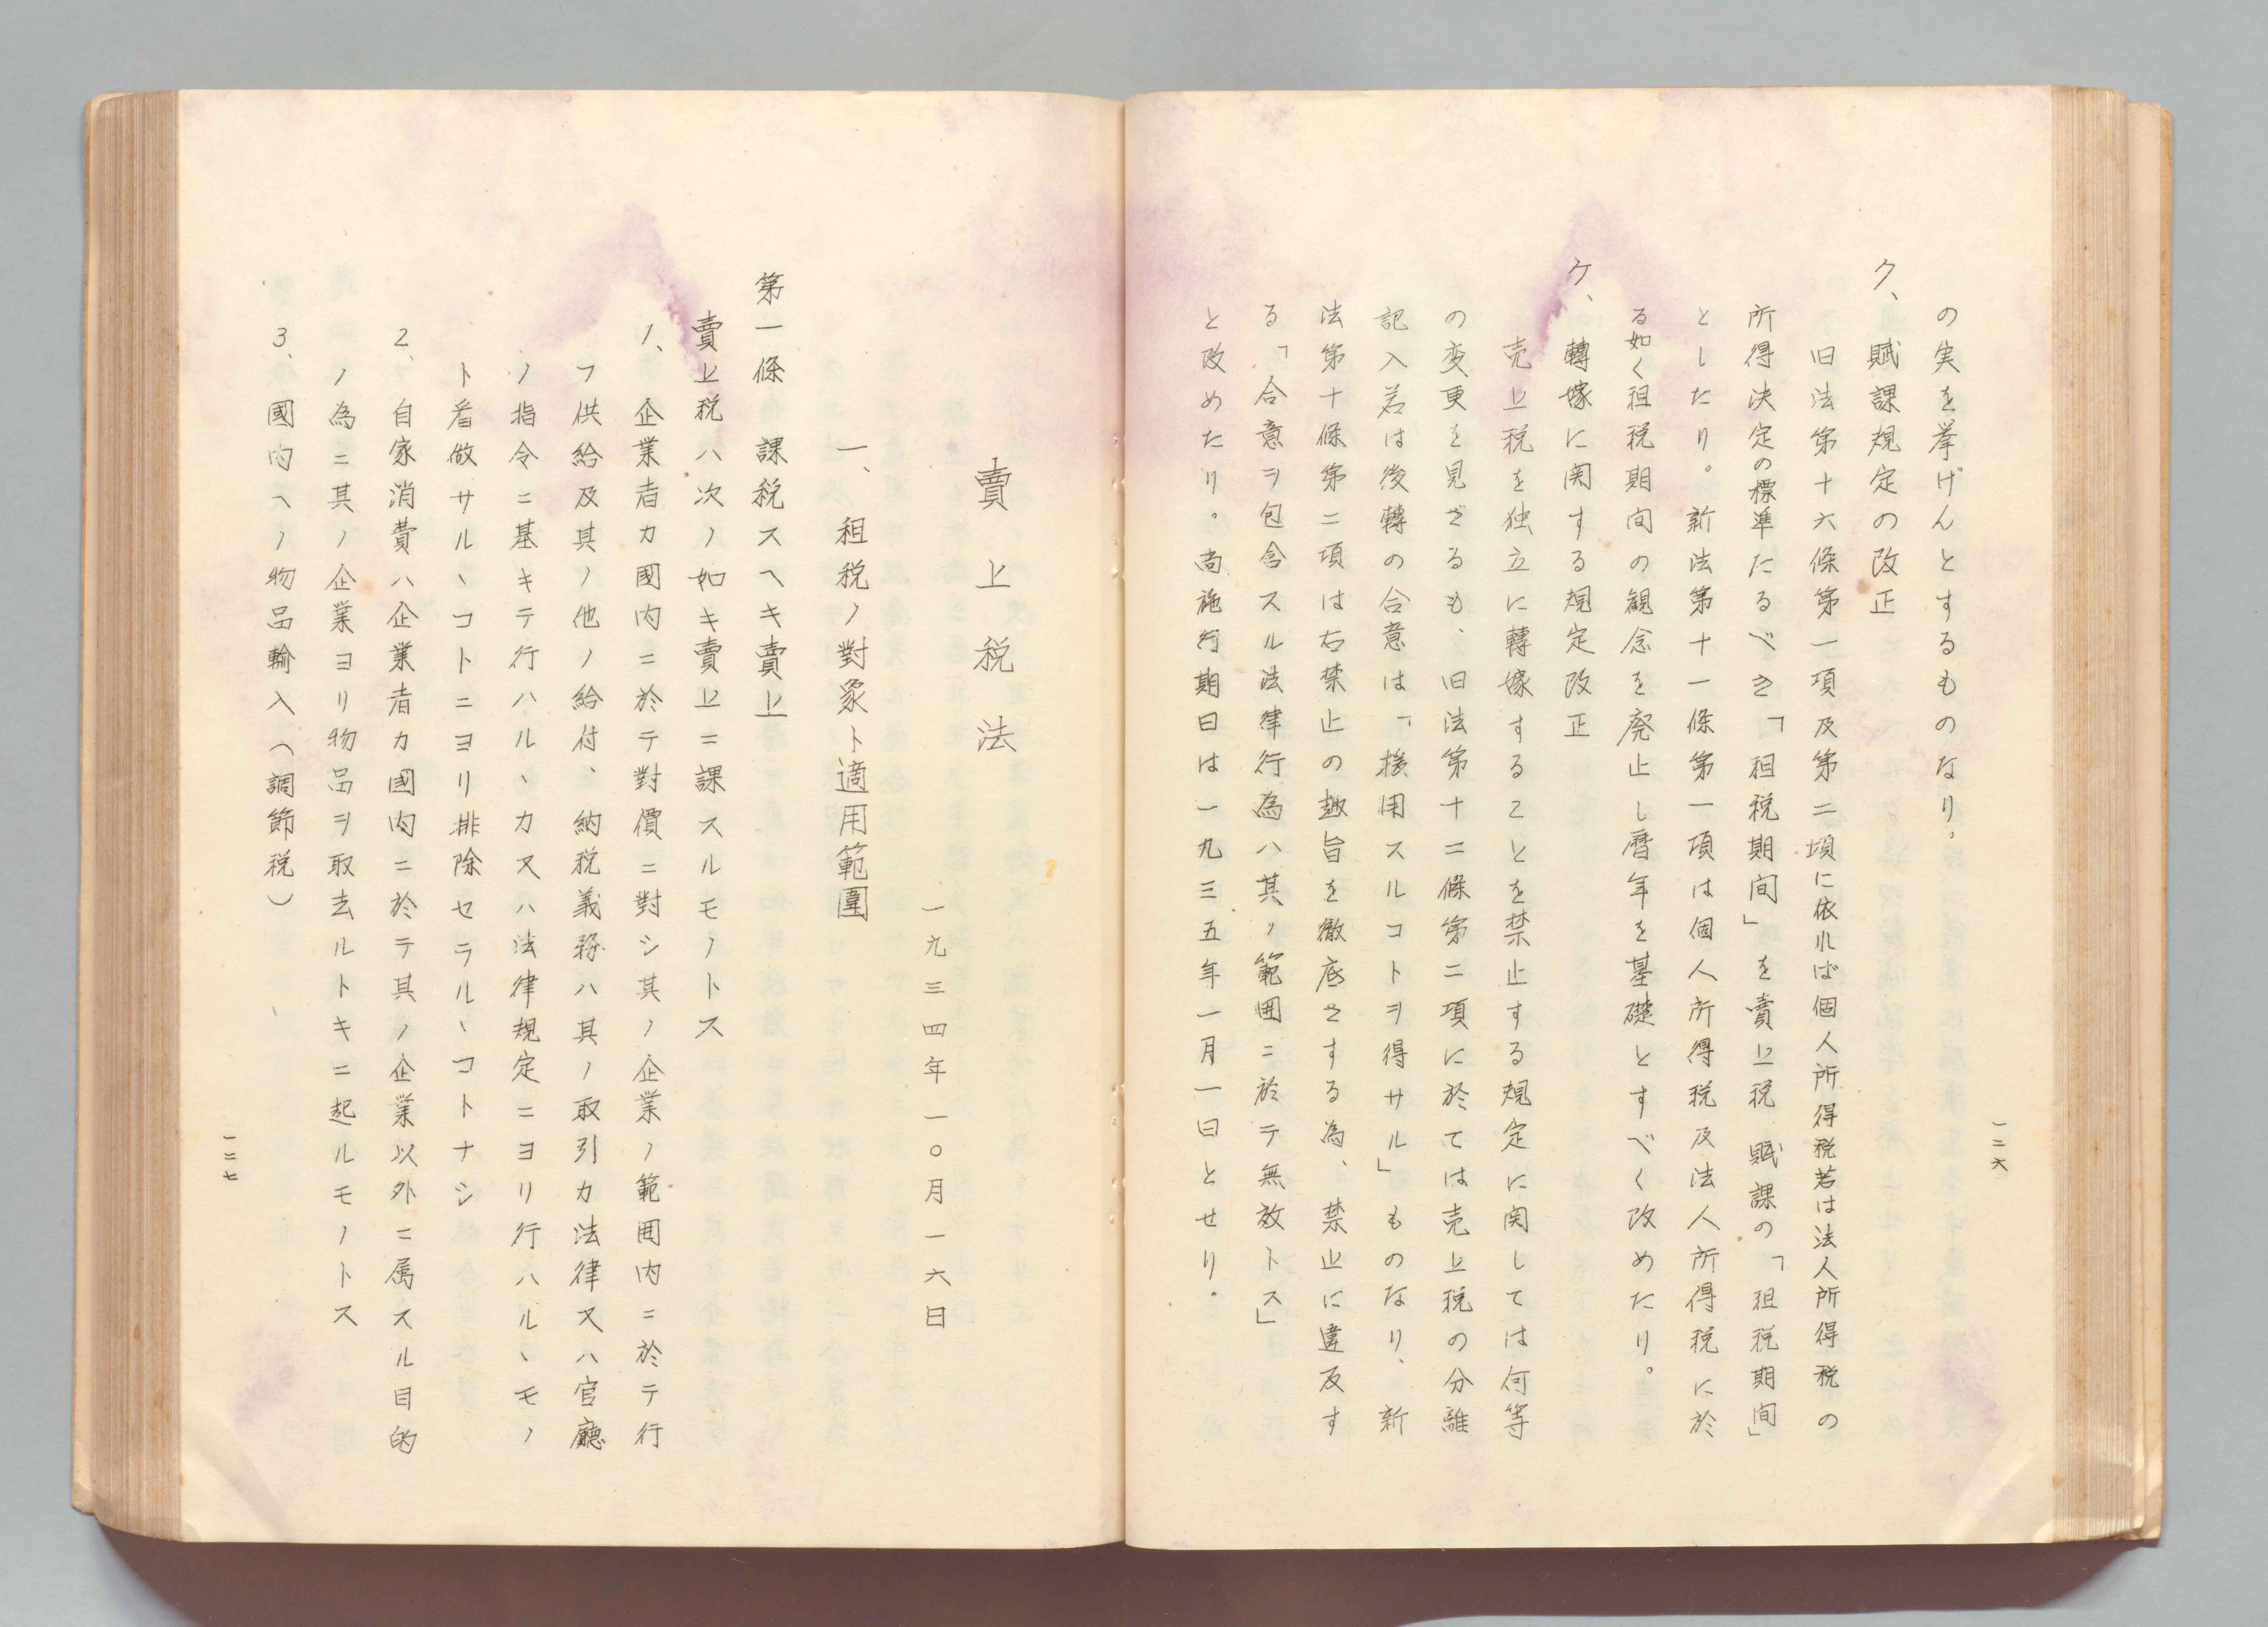 の実を挙げんとするものなり。
ク、賦課規定の改正
旧法第十六條第一項及第二項に依れば個人所得税若は法人所得税の
所得決定の標準たるべき「租税期间」を賣上税賦課の「租税期间」
としたり。新法第十一條第一項は個人所得税及法人所得税に於
る如く租税期间の観念を廃止し曆年を基礎とすべく改めたり。
ケ、轉嫁に関する規定改正
売上税を独立に轉嫁することを禁止する規定に関しては何等
の変更を見ざるも、旧法第十二條第二項に於ては売上税の分離
記入若は後轉の合意は「援用スルコトヲ得サル」ものなり、新
法第十條第二項は右禁止の趣旨を徹底さする為、禁止に違反す
る「合意ヲ包含スル法律行為ハ其ノ範囲ニ於テ無效トス」
と改めたり。尚施行期日は一九三五年一月一日とせり。
一二六
賣上税法
一九三四年一〇月一六日
一、租税ノ對象ト適用範圍
第一條 課税スヘキ賣上
賣上税ハ次ノ如キ賣上ニ課スルモノトス
1、企業者カ國内ニ於テ對價ニ對シ其ノ企業ノ範囲内ニ於テ行
フ供給及其ノ他ノ給付、納税義務ハ其ノ取引カ法律又ハ官廳
ノ指令ニ基キテ行ハルヽカ又ハ法律規定ニヨリ行ハルヽモノ
ト看做サルヽコトニヨリ排除セラルヽコトナシ
2、自家消費ハ企業者カ國内ニ於テ其ノ企業以外ニ属スル目的
ノ為ニ其ノ企業ヨリ物品ヲ取去ルトキニ起ルモノトス
3、國内ヘノ物品輸入（調節税）
一二七